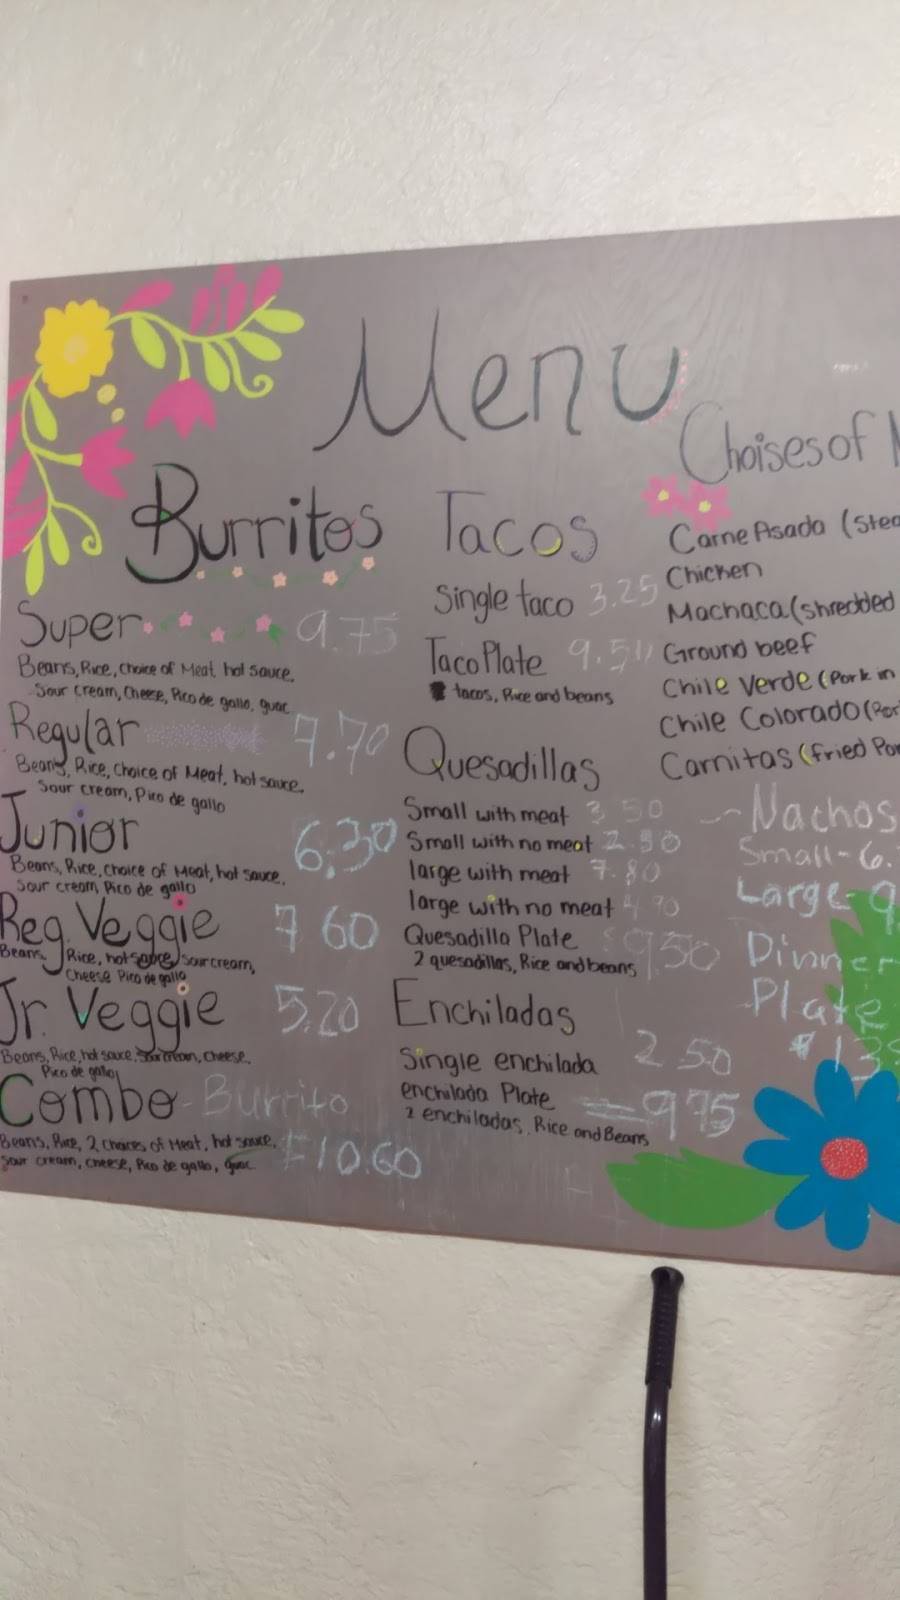 Menu
Burritos
Super 9.75
Beans, Rice, choice of Meat, hot sauce,
Sour cream, Cheese, Pico de gallo, guac
Regular 7.70
Beans, Rice, choice of Meat, hot sauce,
Sour cream, Pico de gallo
Junior 6.30
Beans, Rice, choice of Meat, hot sauce,
Sour cream, Pico de gallo
Reg. Veggie 7 60
Beans, Rice, hot sauce, sour cream,
Cheese Pico de gallo
Jr. Veggie 5.20
Beans, Rice, hot sauce, sour cream, cheese,
Pico de gallo
Combo - Burrito
Beans, Rice, 2 choices of Meat, hot sauce, 10.60
Sour cream, cheese, Pico de gallo, guac
Tacos
Single taco 3.25
Taco Plate
tacos, Rice and beans
Quesadillas
Small with meat 3 50
Small with no meat
large with meat 7.80
large with no meat 4 90
Quesadilla Plate 9.50
2 quesadillas, Rice and beans
Enchiladas
Single enchilada 2 50
enchilada Plate 9 75
2 enchiladas, Rice and Beans
Choises of
Carne Asada
Chicken
Machaca (shredded
Ground beef
Chile Verde (Pork in
Chile Colorado
Carnitas (fried
Nachos
Small - 6.
Large - 9
Dinner
Plate
$13